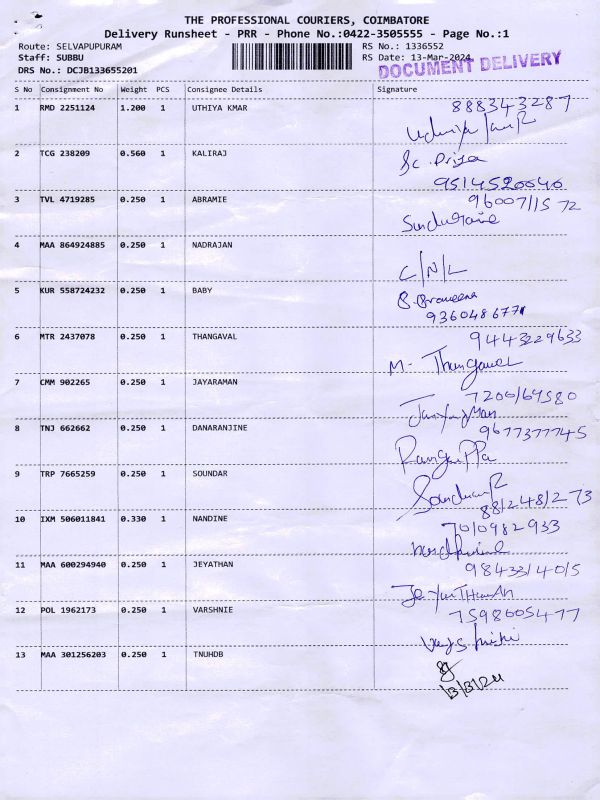 THE PROFESSIONAL COURIERS, COIMBATORE
Delivery Runsheet - PRR - Phone No.:0422-3505555 - Page No.:1
Route: SELVAPUPURAM RS No.: 1336552
Staff: SUBBU RS Date: 13-Mar-2024
DRS No.: DCJB133655201
DOCUMENT DELIVERY
S No Consignment No Weight PCS Consignee Details Signature
1 RMD 2251124 1.200 1 UTHIYA KMAR 888343287
2 TCG 238209 0.560 1 KALIRAJ Sc. Priya
9514520040
3 TVL 4719285 0.250 1 ABRAMIE 9600711572
4 MAA 864924885 0.250 1 NADRAJAN
C/N/L
5 KUR 558724232 0.250 1 BABY B. Praveena
9360486771
6 MTR 2437078 0.250 1 THANGAVAL 9443229633
M. Thangavel
7 CMM 902265 0.250 1 JAYARAMAN 7200164580
8 TNJ 662662 0.250 1 DANARANJINE 9677377745
9 TRP 7665259 0.250 1 SOUNDAR
8812481273
10 IXM 506011841 0.330 1 NANDINE 7010982933
11 MAA 600294940 0.250 1 JEYATHAN 9843314015
12 POL 1962173 0.250 1 VARSHNIE 7598605477
13 MAA 301256203 0.250 1 TNUHDB
13/3/24